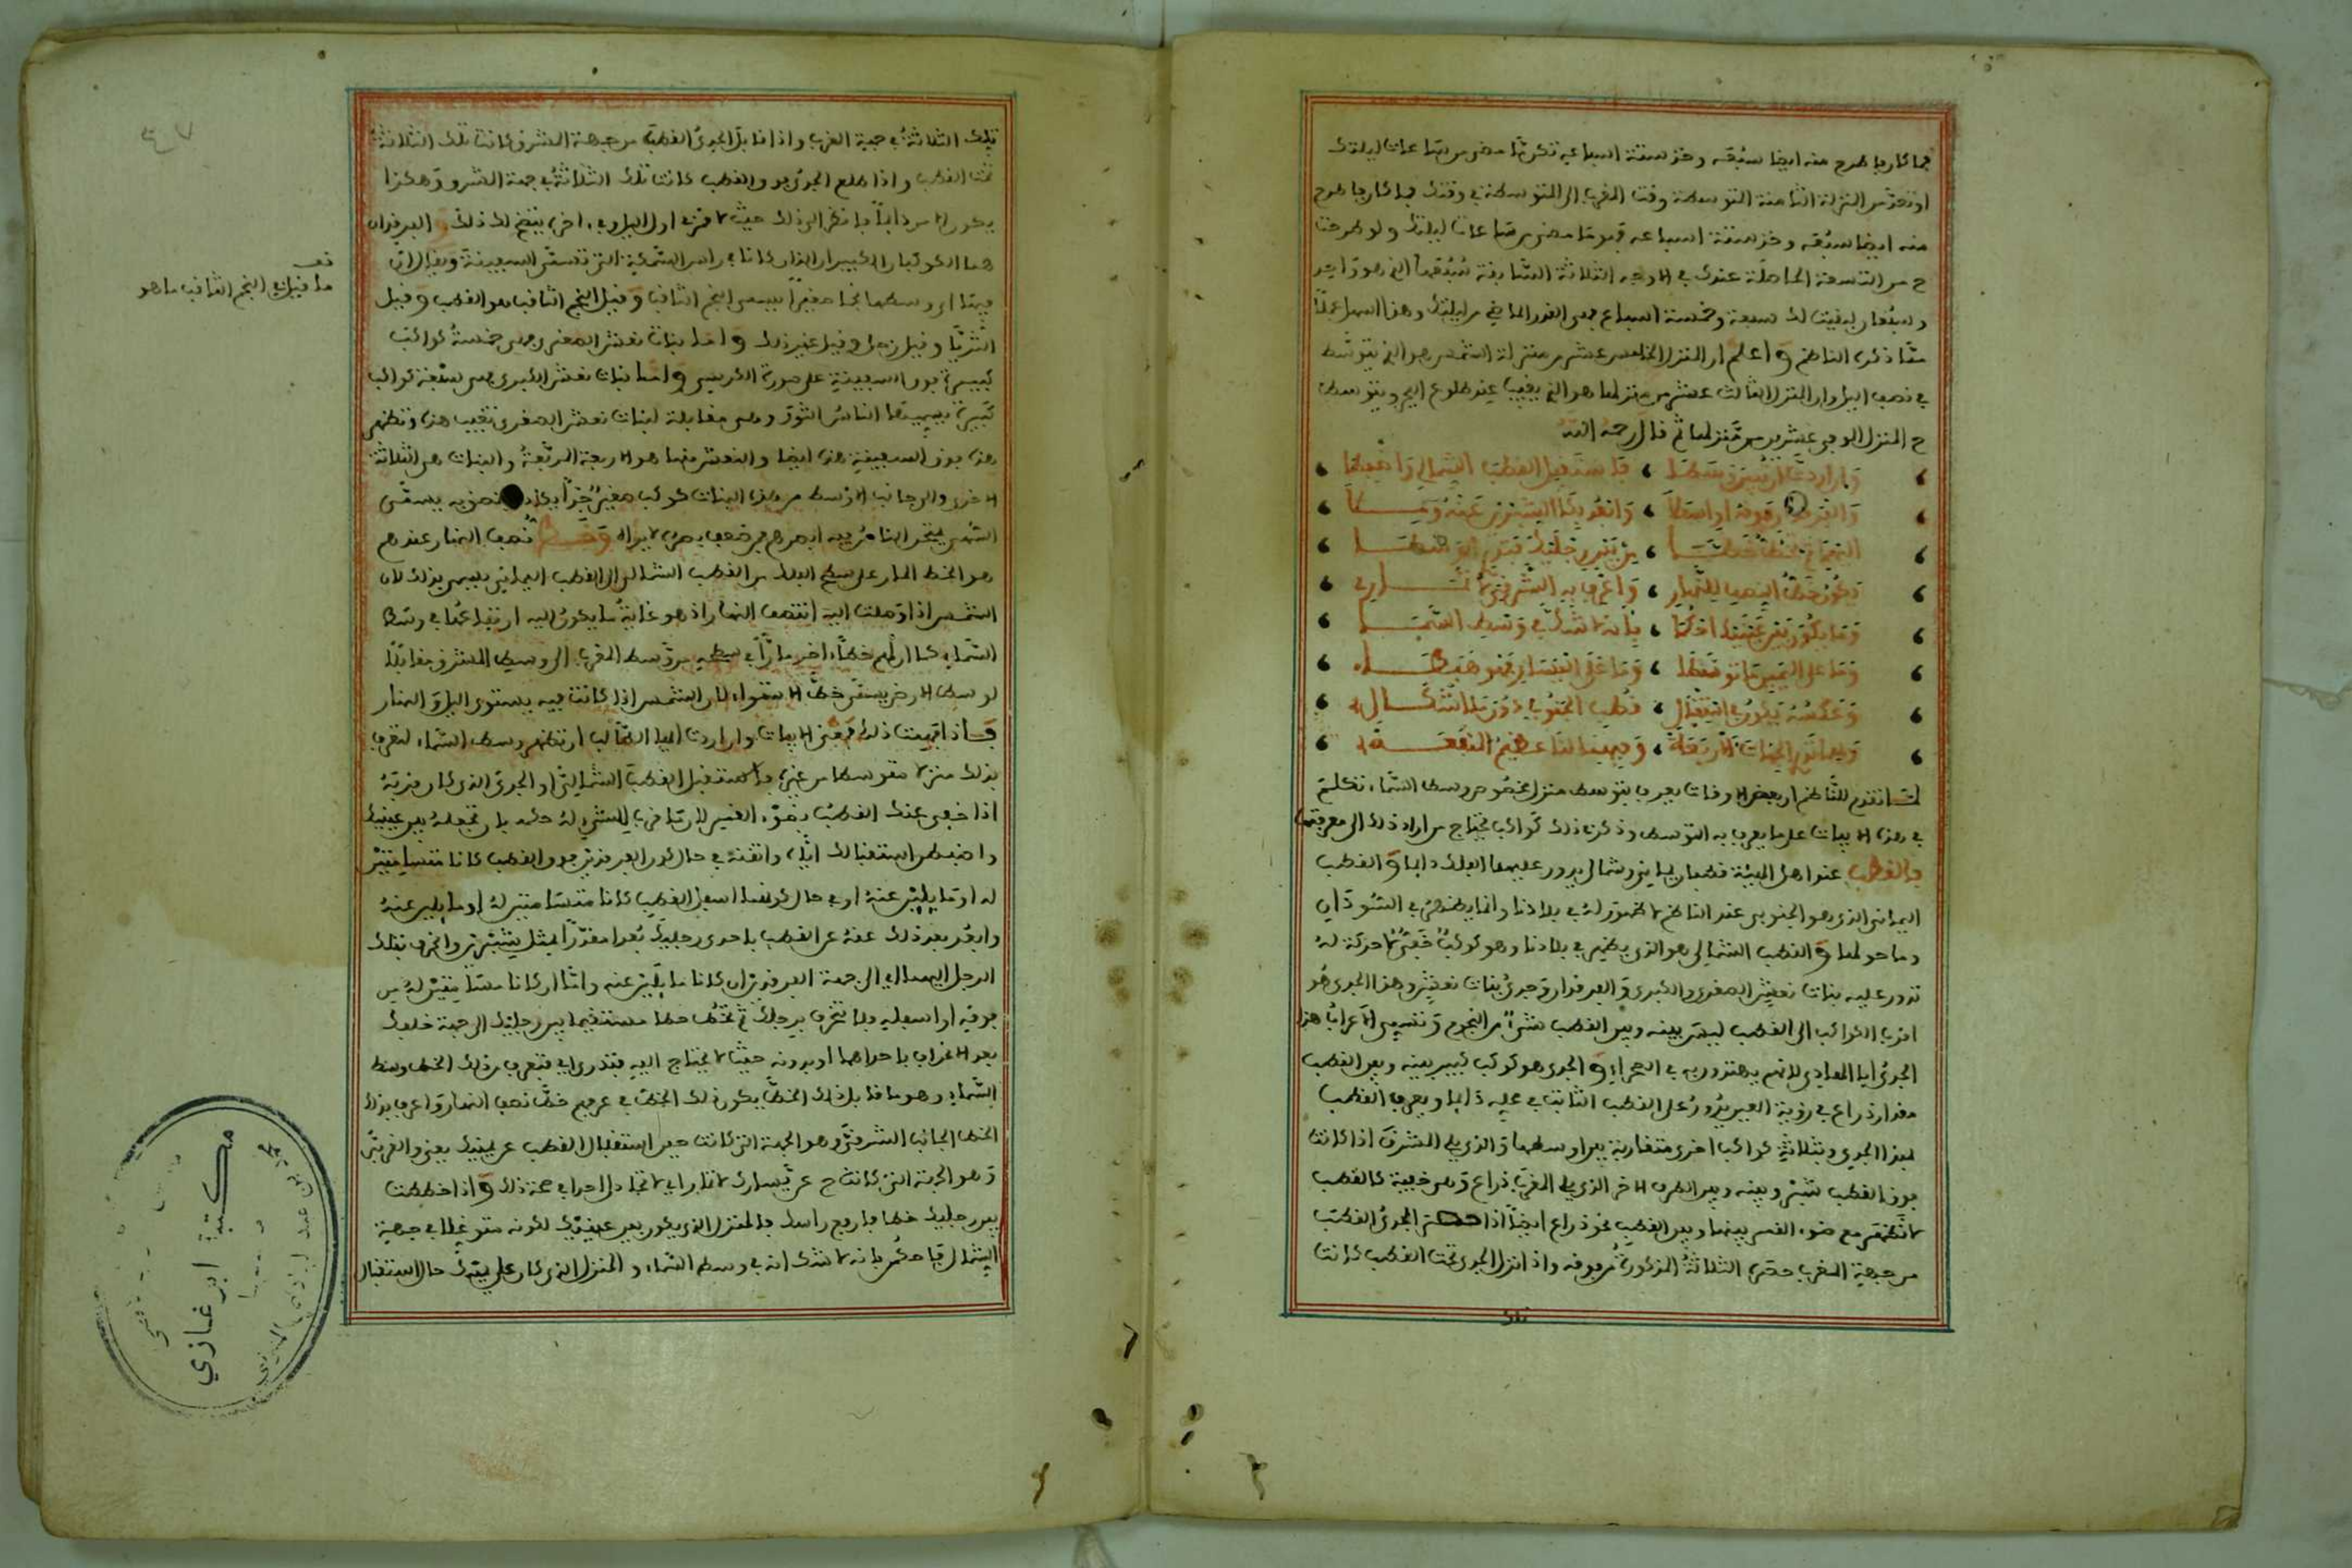 فما كان بها طرح منه ايضا سبعه وخذ ستة اسباعه تكن ما مضى من ساعات ليلتك
او تعد من المنزلة الثامنة المتوسطة وقت المغرب الى المتوسطة في وقتك فما كان بها طرح
منه ايضا سبعه وخذ ستة اسباعه فهو ما مضى من ساعات ليلتك ولو طرحت
ح من التسعة الحاصلة عندك في الاوجه الثلاثة السابقة سبعها الذي هو واحد
وسبعان لبقيت لك سبعة وخمسة اسباع هي القدر الماضي من ليلتك وهذا اسهل عملا
مما ذكره الناظم واعلم ان المنزل الخامس عشر من منزلة الشمس هو الذي يتوسط
في نصف الليل وان المنزل الثالث عشر من منزلها هو الذي يغيب عند طلوع الفجر ويتوسط
ح المنزل الموفي عشرين من منزلها ثم قال رحمه الله
وان اردت ان تبين وسطا ، فاستقبل القطب الشمالي
، وابعد بكالشبرين عنه
بين رجليك
يكون خط النصف للنهار ، واعرف به الشرقي
وما يكون بين عينيك احكما ، بانه لا شك في وسط السما
وما على اليمين ما توسطا ، وما على اليسار فهو هبطا
وعكسه يكون في استقبال ، قطب الجنوب دون ما اشكال
الجهات الاربعة ، وفيهما لنا عظيم المنفعة
لما تقدم للناظم ان بعض الاوقات يعرف بتوسط منزل مخصوص وسط السماء تكلم
في هذه الابيات على ما يعرف به التوسط وذكر في ذلك كواكب يحتاج من اراد ذلك الى معرفتها
فالقطب عند اهل الهيئة قطبان يماني وشمالي يدور عليهما الفلك دايما والقطب
اليماني الذي هو الجنوبي عند الناظم لا ظهور له في بلادنا وانما يظهر في السودان
وما حولها والقطب الشمالي هو الذي يظهر في بلادنا وهو كوكب خفي لا حركة له
تدور عليه بنات نعش الصغرى والكبرى والفرقدان وجدي بنات نعش وهذا الجدي هو
اقرب الكواكب الى القطب ليس بينه وبين القطب شيء من النجوم وتسمي الاعراب هذا
الجدي ايا الهادي لانهم يهتدون به في الصحراء والجدي هو كوكب كبير بينه وبين القطب
مقدار ذراع في رؤية العين يدور على القطب الثابت في محله دايما ويعرف القطب
بهذا الجدي وبثلاثة كواكب اخرى متقاربة بين اوسطها والذي يلي المشرق اذا كانت
فوق القطب شبر وبينه وبين الطرف الاخر الذي يلي المغرب ذراع وهي خفية كالقطب
لا تظهر مع ضوء القمر بينها وبين القطب نحو ذراع ايضا اذا الجدي القطب
من جهة المغرب حضرت الثلاثة المذكورة من فوقه واذا نزل الجدي تحت القطب كانت
تلك
تلك الثلاثة في جهة الغرب واذا قابل الجدي القطب من جهة المشرق كانت تلك الثلاثة
تحت القطب واذا طلع الجدي فوق القطب كانت تلك الثلاثة في جهة الشرق وهكذا
يكون الامر دايما فانظر الى ذلك حيث لا قمر في اول الليل وفي اخره يتضح لك ذلك والفرقدان
هما الكوكبان الكبيران اللذان كانا في راس السمكة التي تسمى السفينة ويقال ان
فيها او وسطها نجما صغيرا يسمى النجم الثاقب وقيل النجم الثاقب هو القطب وقيل
الثريا وقيل زحل وقيل غير ذلك واما بنات نعش الصغرى وهي خمسة كواكب
كبيرة فوق السفينة على صورة الكرسي واما بنات نعش الكبرى هي سبعة كواكب
كبيرة يسميها الناس الثور وهي مقابلة لبنات نعش الصغرى تغيب هذه وتظهر
هذه فوق السفينة هذه ايضا والنعش منها هو الاربعة المربعة والبنات هي الثلاثة
الاخرى والى جانب الاوسط من هذه البنات كوكب صغير جدا يكاد يلتصق به يسمى
السهى يختبر الناس به ابصارهم من ضعف بصره لا يراه وخط نصف النهار عندهم
هو الخط المار على سطح الفلك من القطب الشمالي الى القطب اليماني يسمى بذلك لان
الشمس اذا وصلت اليه انتصف النهار اذ هو غاية ما يكون اليه ارتفاعها في وسط
السماء كما ان لهم خطا اخر مارا في سطحه من وسط المغرب الى وسط المشرق مقابلا
لوسط الارض يسمى خط الاستواء لان الشمس اذا كانت فيه يستوي الليل والنهار
فاذا فهمت ذلك فمعنى الابيات وان اردت ايها الطالب ان تظهر وسط السماء لتعرف
بذلك منزلا متوسطا من غيره فاستقبل القطب الشمالي او الجدي الذي كان قربه
اذا خفي عنك القطب بضوء القمر لان ما قرب للشيء له حكمه بان تجعله بين عينيك
واضبط استقبالك اياه واتقنه في حال كون الفرقدين فوق القطب كانا متسامتين
له او مايلين عنه او في حال كونهما اسفل القطب كانا متسامتين له او مايلين عنه
وابعد بعد ذلك عنه عن القطب باحدى رجليك بعدا مقدرا بمثل شبرين وانحرف بتلك
الرجل الى جهة الفرقدين ان كانا مايلين عنه واما ان كانا مسامتين له من
فوقه او اسفله فلا تنحرف برجلك ثم تخط خطا مستقيما بين رجليك الى جهة خلفك
بعد الانحراف باحداهما او بدونه حيث لا يحتاج اليه فتدري اي فتعرف بذلك الخط وسط
السماء وهو ما قابل ذلك الخط يكون ذلك الخط في عرفهم خط نصف النهار واعرف بذلك
الخط الجانب الشرقي وهو الجهة التي كانت حين استقبال القطب عن يمينك يعني والغربي
وهو الجهة التي كانت ح عن يسارك لا تمار اي لا تجادل احدا في صحة ذلك واذا خططت
بين رجليك خطا فارفع راسك فالمنزل الذي يكون بين عينيك لكونه متوغلا في جهة
الشمال فاحكم بانه لا شك انه في وسط السماء والمنزل الذي كان على يمينك حال استقبال
قف
ما قيل في النجم الثاقب ما هو
٤٧
مكتبة ابن غازي